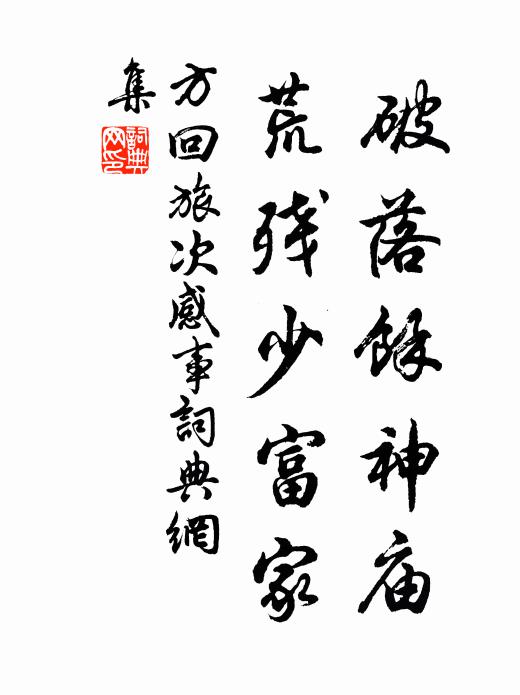 破落餘神庙
荒残少富家
方回旅次感事詞典網
集
詞典網印